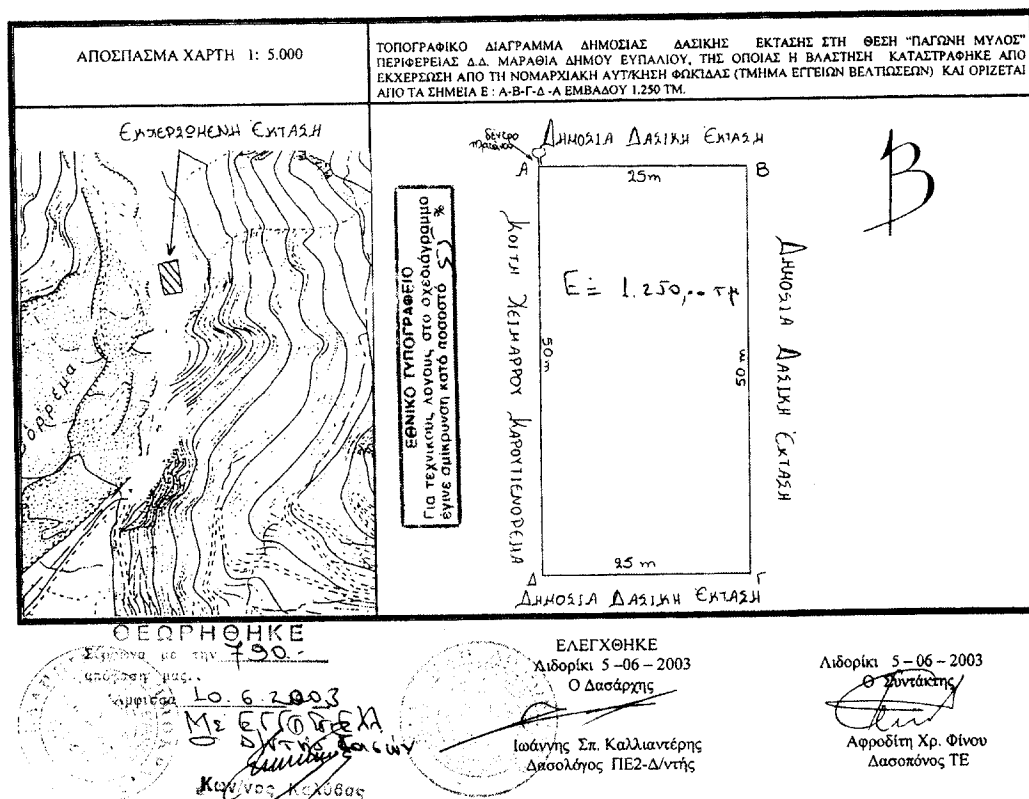 ΑΠΟΣΠΑΣΜΑ ΧΑΡΤΗ 1: 5.000
ΤΟΠΟΓΡΑΦΙΚΟ ΔΙΑΓΡΑΜΜΑ ΔΗΜΟΣΙΑΣ ΔΑΣΙΚΗΣ ΕΚΤΑΣΗΣ ΣΤΗ ΘΕΣΗ "ΠΑΓΩΝΗ ΜΥΛΟΣ"
ΠΕΡΙΦΕΡΕΙΑΣ Δ.Δ. ΜΑΡΑΘΙΑ ΔΗΜΟΥ ΕΥΠΑΛΙΟΥ, ΤΗΣ ΟΠΟΙΑΣ Η ΒΛΑΣΤΗΣΗ ΚΑΤΑΣΤΡΑΦΗΚΕ ΑΠΟ
ΕΚΧΕΡΣΩΣΗ ΑΠΟ ΤΗ ΝΟΜΑΡΧΙΑΚΗ ΑΥΤ/ΚΗΣΗ ΦΩΚΙΔΑΣ (ΤΜΗΜΑ ΕΓΓΕΙΩΝ ΒΕΛΤΙΩΣΕΩΝ) ΚΑΙ ΟΡΙΖΕΤΑΙ
ΑΠΟ ΤΑ ΣΗΜΕΙΑ Ε : Α-Β-Γ-Δ -Α ΕΜΒΑΔΟΥ 1.250 ΤΜ.
ΕΚΧΕΡΣΩΜΕΝΗ ΕΚΤΑΣΗ
δέντρο
πλάτανος
ΔΗΜΟΣΙΑ ΔΑΣΙΚΗ ΕΚΤΑΣΗ
Α
25m
Β
Β
ΕΘΝΙΚΟ ΤΥΠΟΓΡΑΦΕΙΟ
Για τεχνικούς λόγους στο σχεδιάγραμμα
έγινε σμίκρυνση κατά ποσοστό %
ΚΟΙΤΗ ΧΕΙΜΑΡΡΟΥ ΚΑΡΟΥΤΙΕΝΟΡΕΜΑ
50m
Ε= 1.250,.. τμ
50m
ΔΗΜΟΣΙΑ ΔΑΣΙΚΗ ΕΚΤΑΣΗ
Δ
25 m
Γ
ΔΗΜΟΣΙΑ ΔΑΣΙΚΗ ΕΚΤΑΣΗ
ΘΕΩΡΗΘΗΚΕ
Σύμφωνα με την 790.-
απόφασή μας.
Άμφισσα 10.6.2003
Δ/ντης Δασών
Κων/νος Καλύβας
ΕΛΕΓΧΘΗΚΕ
Λιδορίκι 5 -06 – 2003
Ο Δασάρχης
Ιωάννης Σπ. Καλλιαντέρης
Δασολόγος ΠΕ2-Δ/ντής
Λιδορίκι 5 – 06 – 2003
Ο Συντάκτης
Αφροδίτη Χρ. Φίνου
Δασοπόνος ΤΕ